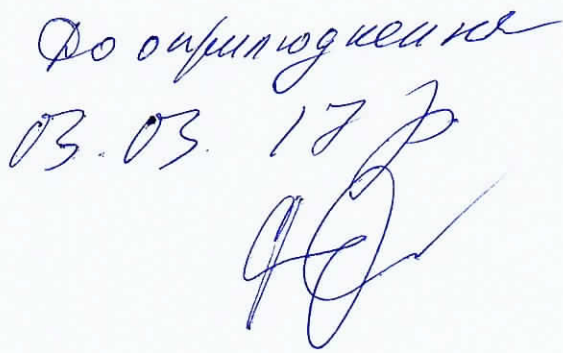 До оприлюднення
03.03.17 р